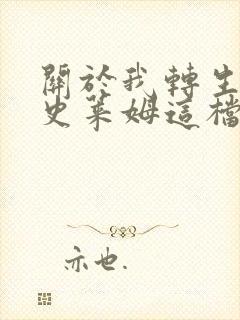 關於我轉生
史萊姆這檔
亦也.